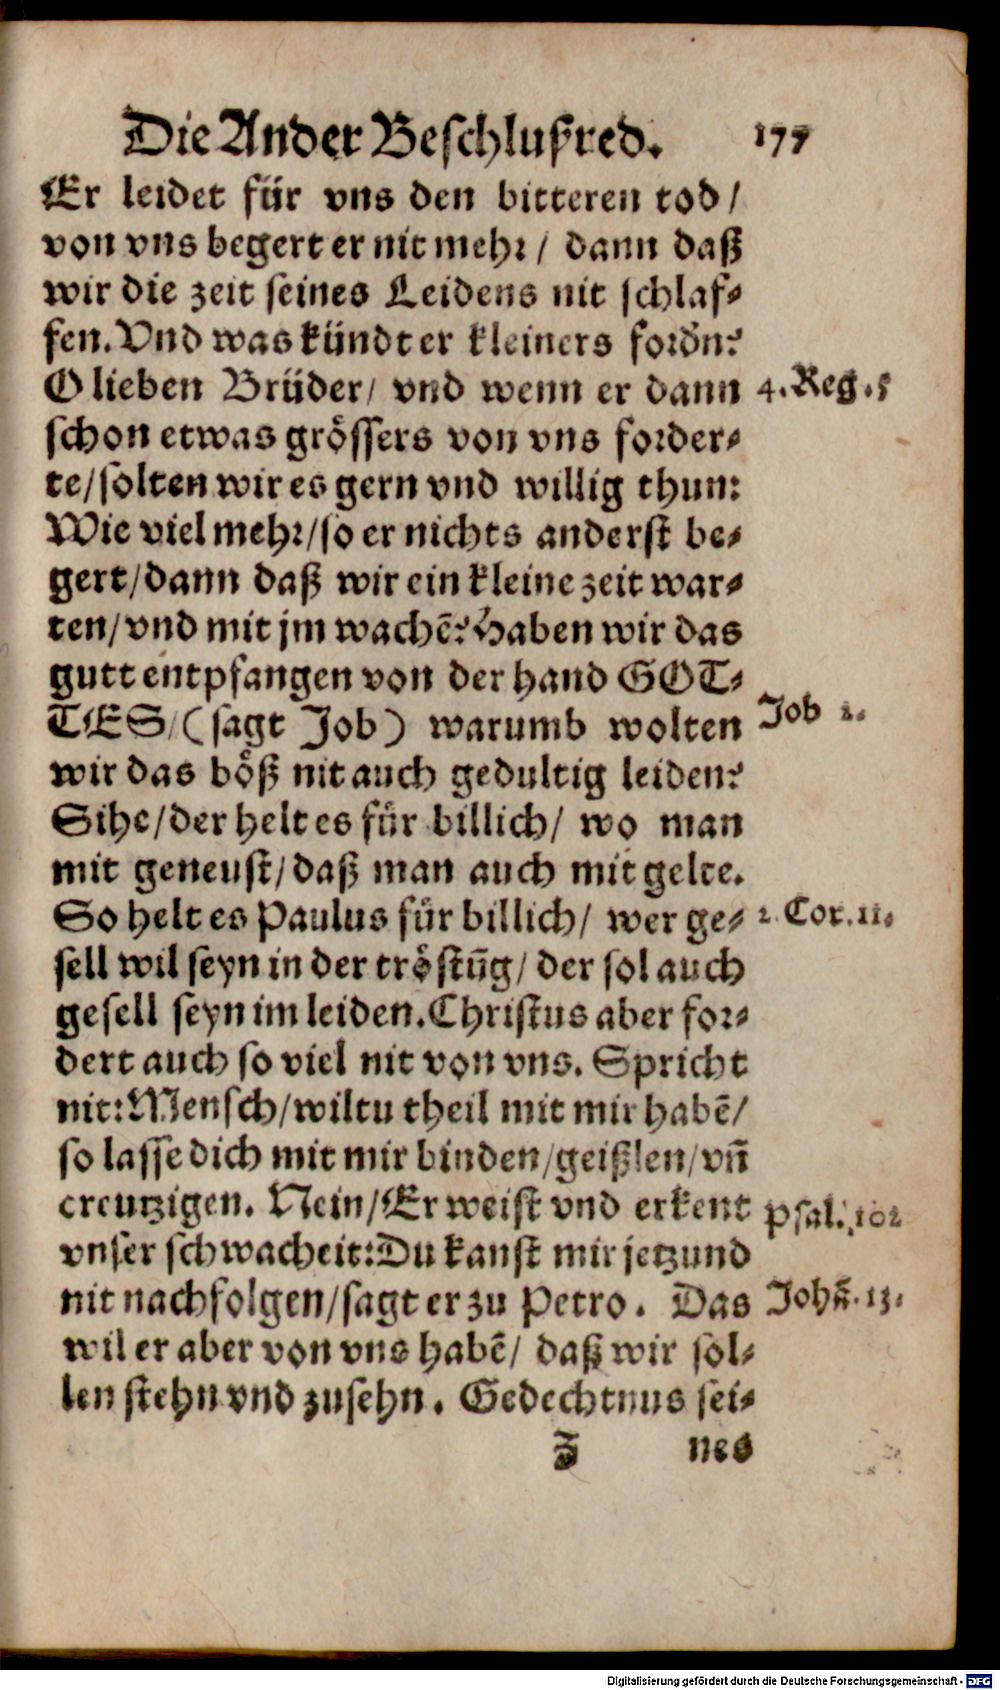 Die Ander Beschlußred. 177
Er leidet für vns den bitteren tod/
von vns begert er nit mehr/ dann daß
wir die zeit seines Leidens nit schlaf-
fen. Vnd was kündt er kleiners fordn?
O lieben Brüder/ vnd wenn er dann
4. Reg. 5
schon etwas grössers von vns forder-
te/ solten wir es gern vnd willig thun:
Wie viel mehr/ so er nichts anderst be-
gert/ dann daß wir ein kleine zeit war-
ten/ vnd mit jm wachẽ? Haben wir das
gutt entpfangen von der hand GOT-
TES/ (sagt Job) warumb wolten
Job 2.
wir das böß nit auch gedultig leiden?
Sihe/ der helt es für billich/ wo man
mit geneust/ daß man auch mit gelte.
So helt es Paulus für billich/ wer ge-
2. Cor. 11.
sell wil seyn in der tröstũg/ der sol auch
gesell seyn im leiden. Christus aber for-
dert auch so viel nit von vns. Spricht
nit: Mensch/ wiltu theil mit mir habẽ/
so lasse dich mit mir binden/ geißlen/ vñ
creutzigen. Nein/ Er weist vnd erkent
Psal. 102
vnser schwacheit: Du kanst mir jetzund
nit nachfolgen/ sagt er zu Petro. Das
Johã. 13.
wil er aber von vns habẽ/ daß wir sol-
len stehn vnd zusehn. Gedechtnus sei-
Z nes
Digitalisierung gefördert durch die Deutsche Forschungsgemeinschaft - DFG